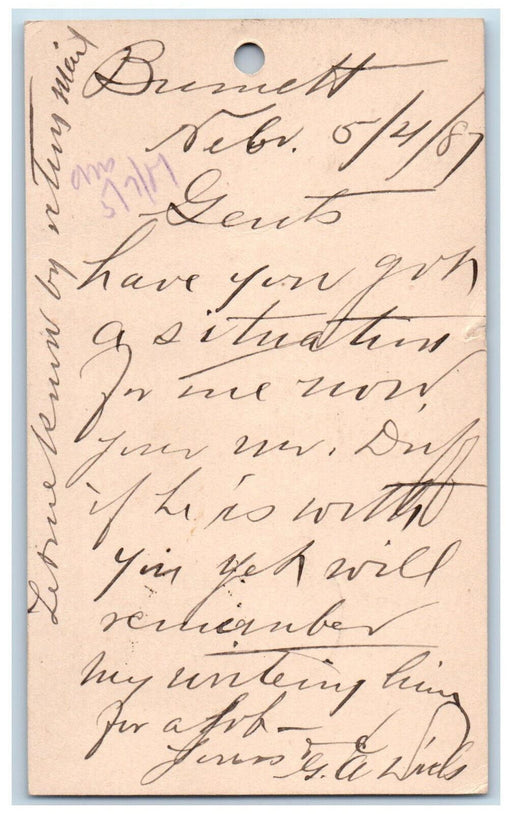 Burnett
Nebr. 5/4/87
Gents
have you got
a situation
for me now
your mr. Duff
if he is with
you yet will
remember
my writing him
for a job-
Yours &c
G. A.
Let me know by return mail